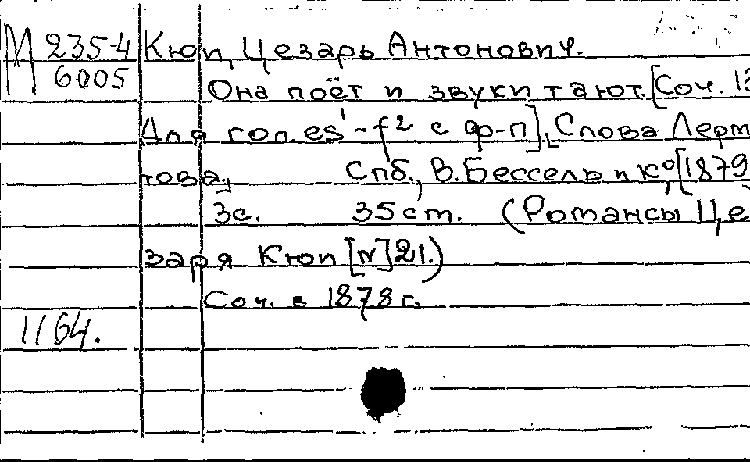 М 235-4 Кюи, Цезарь Антонович.
6005 Она поёт и звуки тают. [Соч. 12
Для гол. es¹-f² с ф-п]. Слова Лермо
това.
Спб., В. Бессель и К⁰, [1879
3с. 35 ст. (Романсы Це
заря Кюи [N] 21.)
Соч. в 1878 г.
1164.